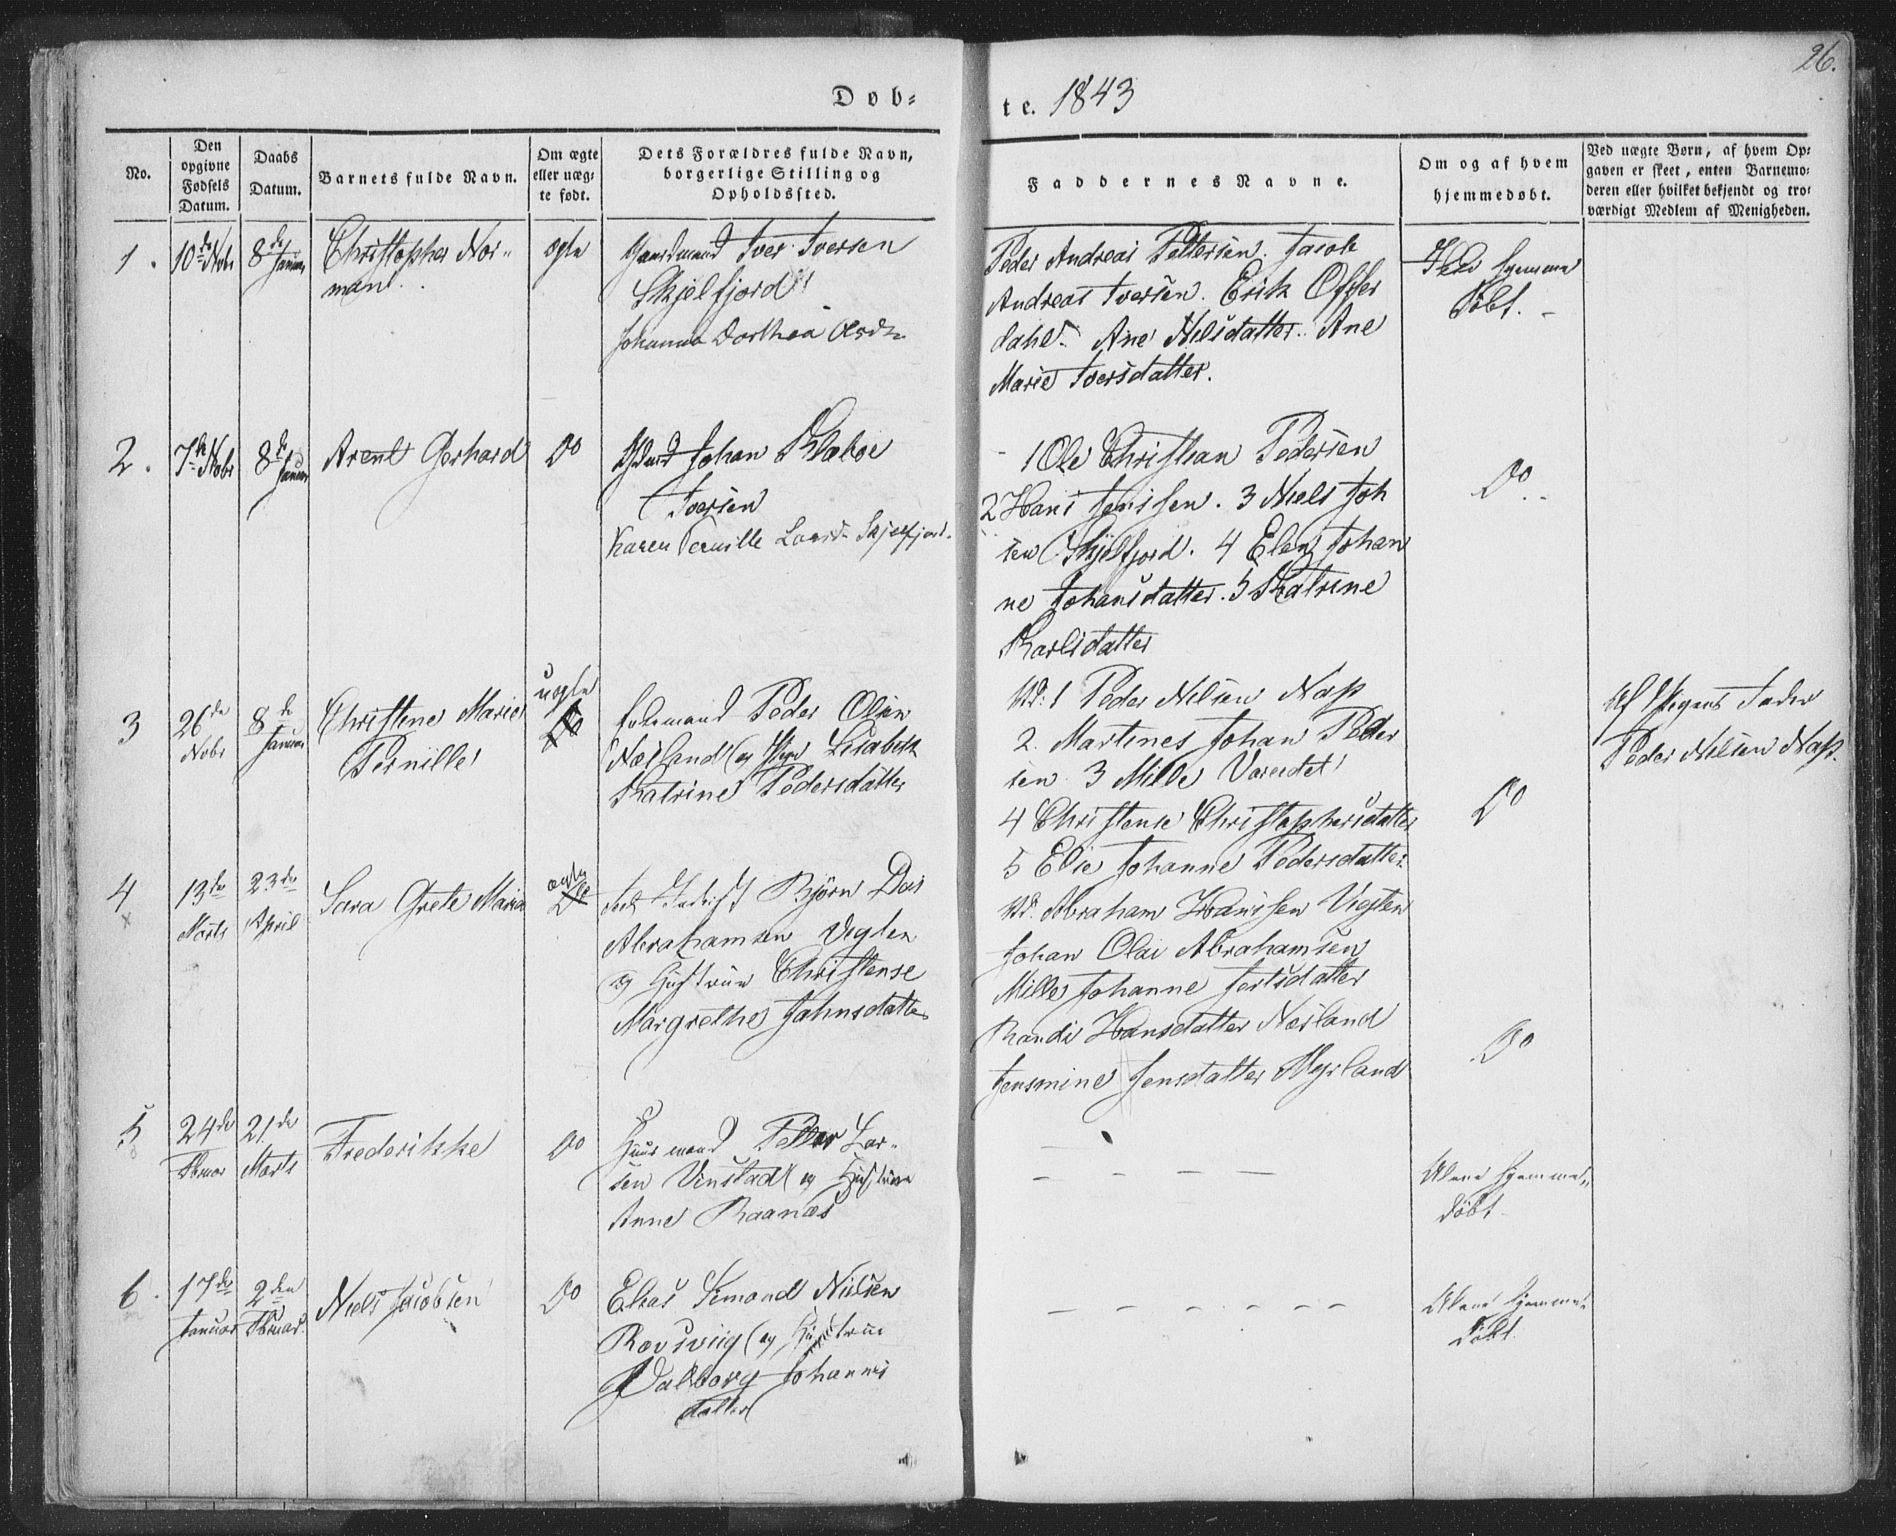 26.
Døb-
te. 1843
No.
Den opgivne Fødsels Datum.
Daabs Datum.
Barnets fulde Navn.
Om ægte eller uægte født.
Dets Forældres fulde Navn, borgerlige Stilling og Opholdssted.
Faddernes Navne.
Om og af hvem hjemmedøbt.
Ved uægte Børn, af hvem Opgaven er skeet, enten Barnemoderen eller hvilket bekjendt og troværdigt Medlem af Menigheden.
1. 10de Nobr 8de Januar Christopher Nor-
man.
ægte
Iver Iversen
Skjelfjord
Johanna Dorthea Olsd
Peder Andreas Pettersen. Jacob
Andreas Iversen. Erik Offer
dahl. Ane Nilsdatter. Ane
Marie Iversdatter.
hjemme
døbt.
2. 7de Nobr 8de Januar Arent Gerhard Do
Johan Klæboe
Iversen
Karen Pernille Larsd Skjelfjord.
1 Ole Christian Pedersen
2 Hans Jenssen. 3 Niels Joh
sen Skjelfjord. 4 Elen Johan
ne Johansdatter. 5 Katrine
Karlsdatter
Do
3 26de Nobr 8de Januar Christine Marie
Pernille
uægte
Peder Olsen
Næsland og Pige Lisabeth
Katrine Pedersdatter
1 Peder Nilsen Nap
2. Martines Johan Peder
sen 3 Mille
4 Christense Christophersdatter
5 Elie Johanne Pedersdatter
Do
Af Pigens Fader
Peder Nilsen Nap.
4 13de Marts 23de April Sara Grete Maria
ægte
Bjørn Das
Abrahamsen Vigten
og Hustrue Christense
Margrethe Jahnsdatter
Abraham Hanssen Vigten
Johan Olai Abrahamsen
Mille Johanne Jertsdatter
Randi Hansdatter Næsland
Jensmine Jensdatter Myrland
Do
5 24de Februar 21de Marts Frederikke Do
Huusmand Peder Lar-
sen Vinstad og Hustrue
Anne Raanæs
Alene hjemme-
døbt.
6. 17de Januar 2den Februar Niels Jacobsen Do
Elias Simond Nielsen
og Hustrue
Valborg Johannes
datter
Alene hjemme-
døbt.